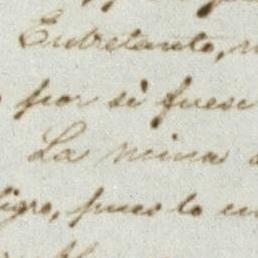 Entretanto,
por si fuese
La mina
ligro, pues lo